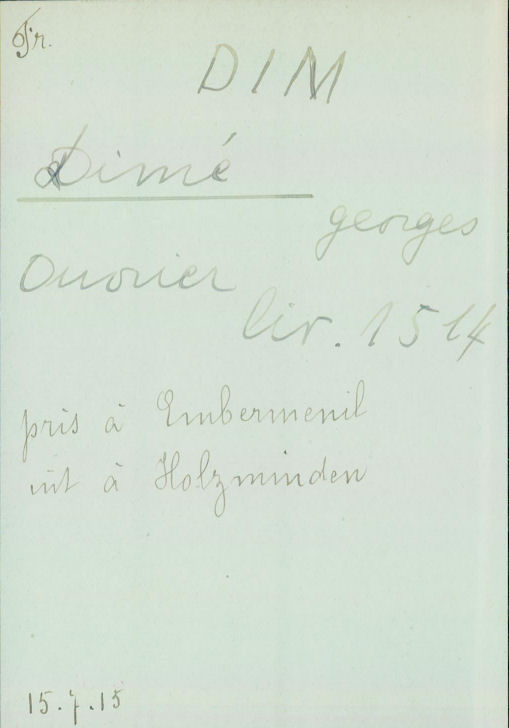 Fr.
DIM
Dimé
georges
Ouvrier
Civ. 1514
pris à Embermenil
int à Holzminden
15.7.15